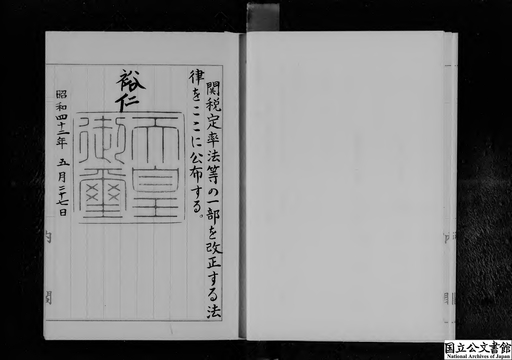 関税定率法等の一部を改正する法
律をここに公布する。
裕仁
天皇
御璽
昭和四十二年五月三十七日
国立公文書館
National Archives of Japan